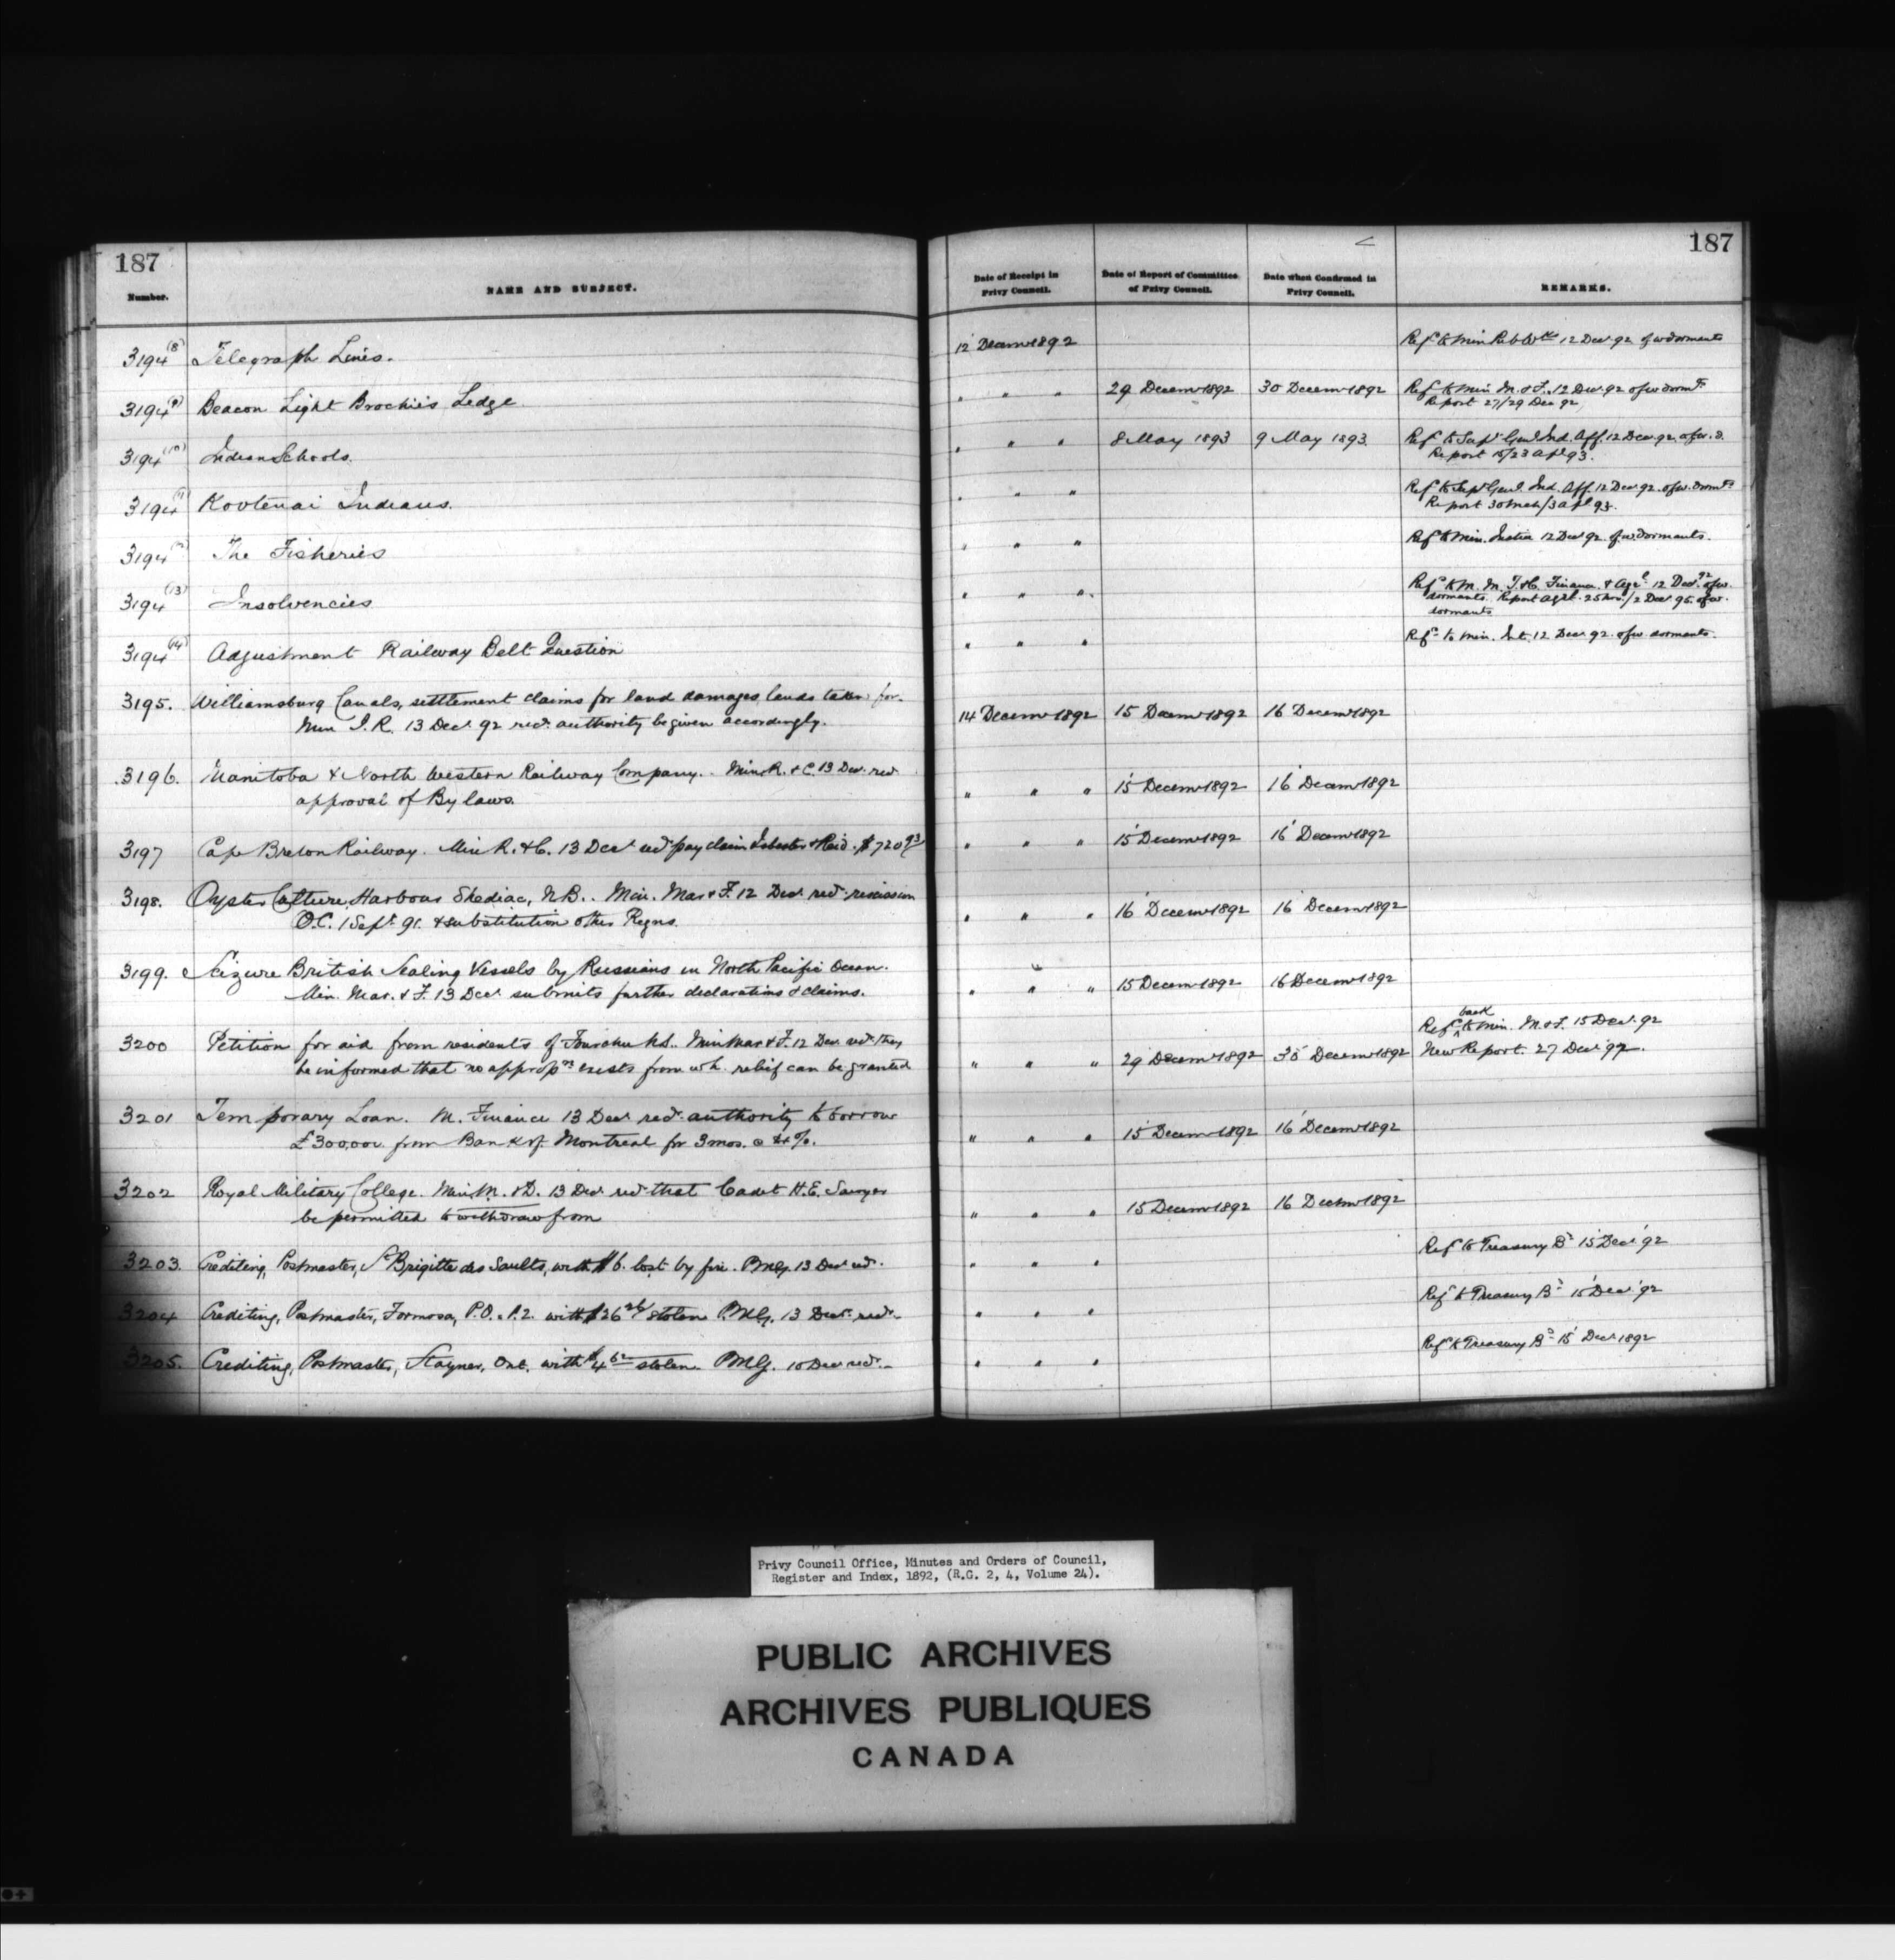 187
187
Number.
NAME AND SUBJECT.
Date of Receipt in Privy Council.
Date of Report of Committee of Privy Council.
Date when Confirmed in Privy Council.
REMARKS.
3194 (8) Telegraph Lines. 12 Decemr 1892 Refd to Min Pub Wks 12 Decr 92 of w dormants
3194 (9) Beacon Light Brochie's Ledge " " " 29 Decemr 1892 30 Decemr 1892 Refd to Min M. & F. 12 Dec 92 of w dormts
Report 27/29 Dec 92
3194 (10) Indian Schools. " " " 8 May 1893 9 May 1893. Refd to Supt Genl Ind. Aff. 12 Dec 92 of w. d.
Report 15/23 Apl 93.
3194 (11) Kootenai Indians. " " " Refd to Supt Genl. Ind. Aff. 12 Dec 92. of w. dormts
Report 30 Mch/3 Apl 93.
3194 The Fisheries " " " Refd to Min. Justice 12 Dec 92. of w. dormants.
3194 (13) Insolvencies " " " Refd to M. M. T. & C. Finance & Agre. 12 Decr 92 of w.
dormants. Report Agre. 25 Nov./2 Decr 95. of w.
dormants
3194 (14) Adjustment Railway Belt Question " " " Refd to Min. Int. 12 Decr 92. of w. dormants.
3195. Williamsburg Canals, settlement claims for land damages, lands taken for.
Min I. R. 13 Decr 92 recd. authority be given accordingly. 14 Decemr 1892 15 Decemr 1892 16 Decemr 1892
3196. Manitoba & North Western Railway Company. Min R. & C. 13 Dec. recd.
approval of By laws. " " " 15 Decemr 1892 16 Decemr 1892
3197 Cape Breton Railway. Min R. & C. 13 Decr recd pay claim Isbester & Reid. $720 93 " " " 15 Decemr 1892 16 Decemr 1892
3198. Oyster Culture, Harbour Shediac, N.B. Min. Mar & F. 12 Decr recd. rescission
O.C. 1 Sept 91. & substitution other Regns. " " " 16 Decemr 1892 16 Decemr 1892
3199. Seizure British Sealing Vessels by Russians in North Pacific Ocean.
Min. Mar. & F. 13 Decr submits further declarations & claims. " " " 15 Decemr 1892 16 Decemr 1892
3200 Petition for aid from residents of Fourchu N.S. Min Mar & F. 12 Dec recd. they
be informed that no appropn exists from wh. relief can be granted " " " 29 Decemr 1892 30 Decemr 1892
Refd back to Min. M & F. 15 Decr 92
New Report. 27 Decr 92.
3201 Temporary Loan. M. Finance 13 Decr recd. authority to borrow
£300,000. from Bank of Montreal for 3 mos. @ 4%. " " " 15 Decemr 1892 16 Decemr 1892
3202 Royal Military College. Min M. & D. 13 Decr recd. that Cadet H.E. Sawyer
be permitted to withdraw from " " " 15 Decemr 1892 16 Decemr 1892
3203. Crediting, Postmaster, St Brigitte des Saults, with $6. lost by fire. PMG. 13 Decr recd. " " " Refd to Treasury Bd 15 Decr '92
3204 Crediting, Postmaster, Formosa, P.O. with $26 26 stolen P.M.G. 13 Decr. recd. " " " Refd to Treasury Bd 15 Decr '92
3205. Crediting, Postmaster, Stayner, Ont. with $4 stolen. PMG. 10 Dec recd. " " " Refd to Treasury Bd 15 Decr 1892
Privy Council Office, Minutes and Orders of Council,
Register and Index, 1892, (R.G. 2, 4, Volume 24).
PUBLIC ARCHIVES
ARCHIVES PUBLIQUES
CANADA